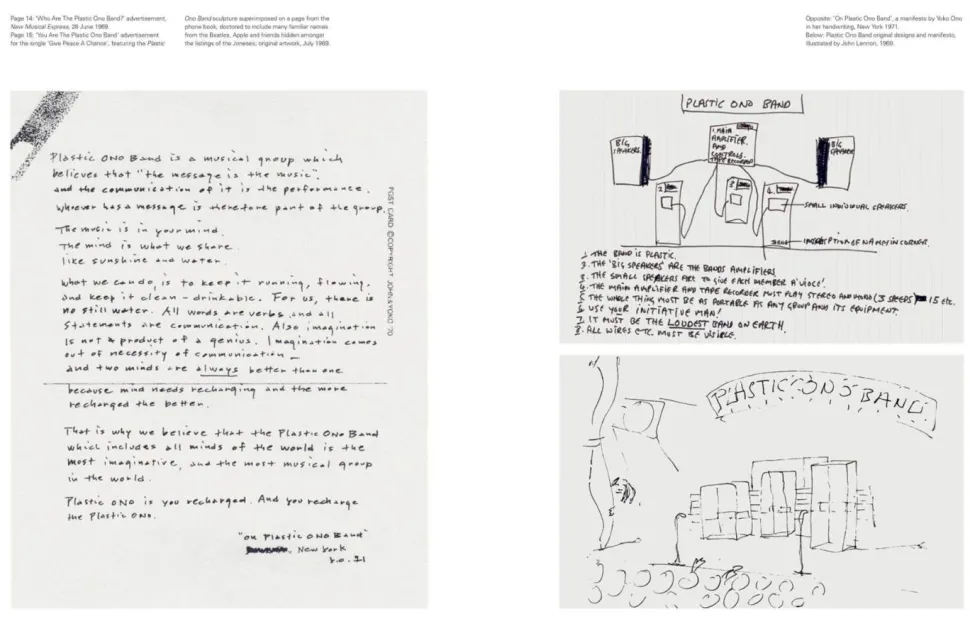 Page 14: 'Who Are The Plastic Ono Band?' advertisement,
New Musical Express, 28 June 1969.
Page 15: 'You Are The Plastic Ono Band' advertisement
for the single 'Give Peace A Chance', featuring the Plastic
Ono Band sculpture superimposed on a page from the
phone book, doctored to include many familiar names
from the Beatles, Apple and friends hidden amongst
the listings of the Joneses; original artwork, July 1969.
Opposite: 'On Plastic Ono Band', a manifesto by Yoko Ono
in her handwriting, New York 1971.
Below: Plastic Ono Band original designs and manifesto,
illustrated by John Lennon, 1969.
Plastic ONO Band is a musical group which
believes that "the message is the music".
and the communication of it is the performance.
Whoever has a message is therefore part of the group.
The music is in your mind.
The mind is what we share.
like sunshine and water.
What we can do, is to keep it running, flowing,
and keep it clean - drinkable. For us, there is
no still water. All words are verbs and all
statements are communication. Also imagination
is not a product of a genius. Imagination comes
out of necessity of communication -
and two minds are always better than one
because mind needs recharging and the more
recharged the better.
That is why we believe that the Plastic ONO Band
which includes all minds of the world is the
most imaginative, and the most musical group
in the world.
Plastic ONO is you recharged. And you recharge
the Plastic ONO.
"on Plastic ONO Band"
New York
y.o. 71
POST CARD ©COPYRIGHT JOHN & YOKO '70
PLASTIC ONO BAND
BIG SPEAKERS.
1. MAIN
AMPLIFIER.
AND
CONTROLS.
TAPE RECORDER
BIG
SPEAKER
2.
3
4.
SMALL INDIVIDUAL SPEAKERS.
INSCRIPTION OF NAMES IN CORNER.
1. THE BAND IS PLASTIC.
2. THE 'BIG SPEAKERS' ARE THE BANDS AMPLIFIERS
3. THE SMALL SPEAKERS ARE TO GIVE EACH MEMBER A 'VOICE'.
4. THE MAIN AMPLIFIER AND TAPE RECORDER MUST PLAY STEREO AND MONO (3 SPEEDS) 15 etc.
5. THE WHOLE THING MUST BE AS PORTABLE AS ANY GROUP AND ITS EQUIPMENT.
6. USE YOUR INITIATIVE MAN!
7. IT MUST BE THE LOUDEST BAND ON EARTH.
8. ALL WIRES ETC. MUST BE VISIBLE.
PLASTIC ONO BAND